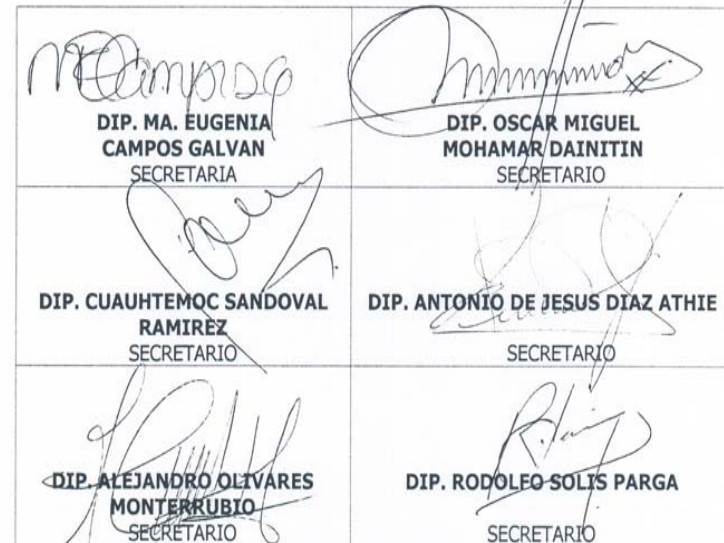 DIP. MA. EUGENIA
CAMPOS GALVAN
SECRETARIA
DIP. OSCAR MIGUEL
MOHAMAR DAINITIN
SECRETARIO
DIP. CUAUHTEMOC SANDOVAL
RAMIREZ
SECRETARIO
DIP. ANTONIO DE JESUS DIAZ ATHIE
SECRETARIO
DIP. ALEJANDRO OLIVARES
MONTERRUBIO
SECRETARIO
DIP. RODOLFO SOLIS PARGA
SECRETARIO